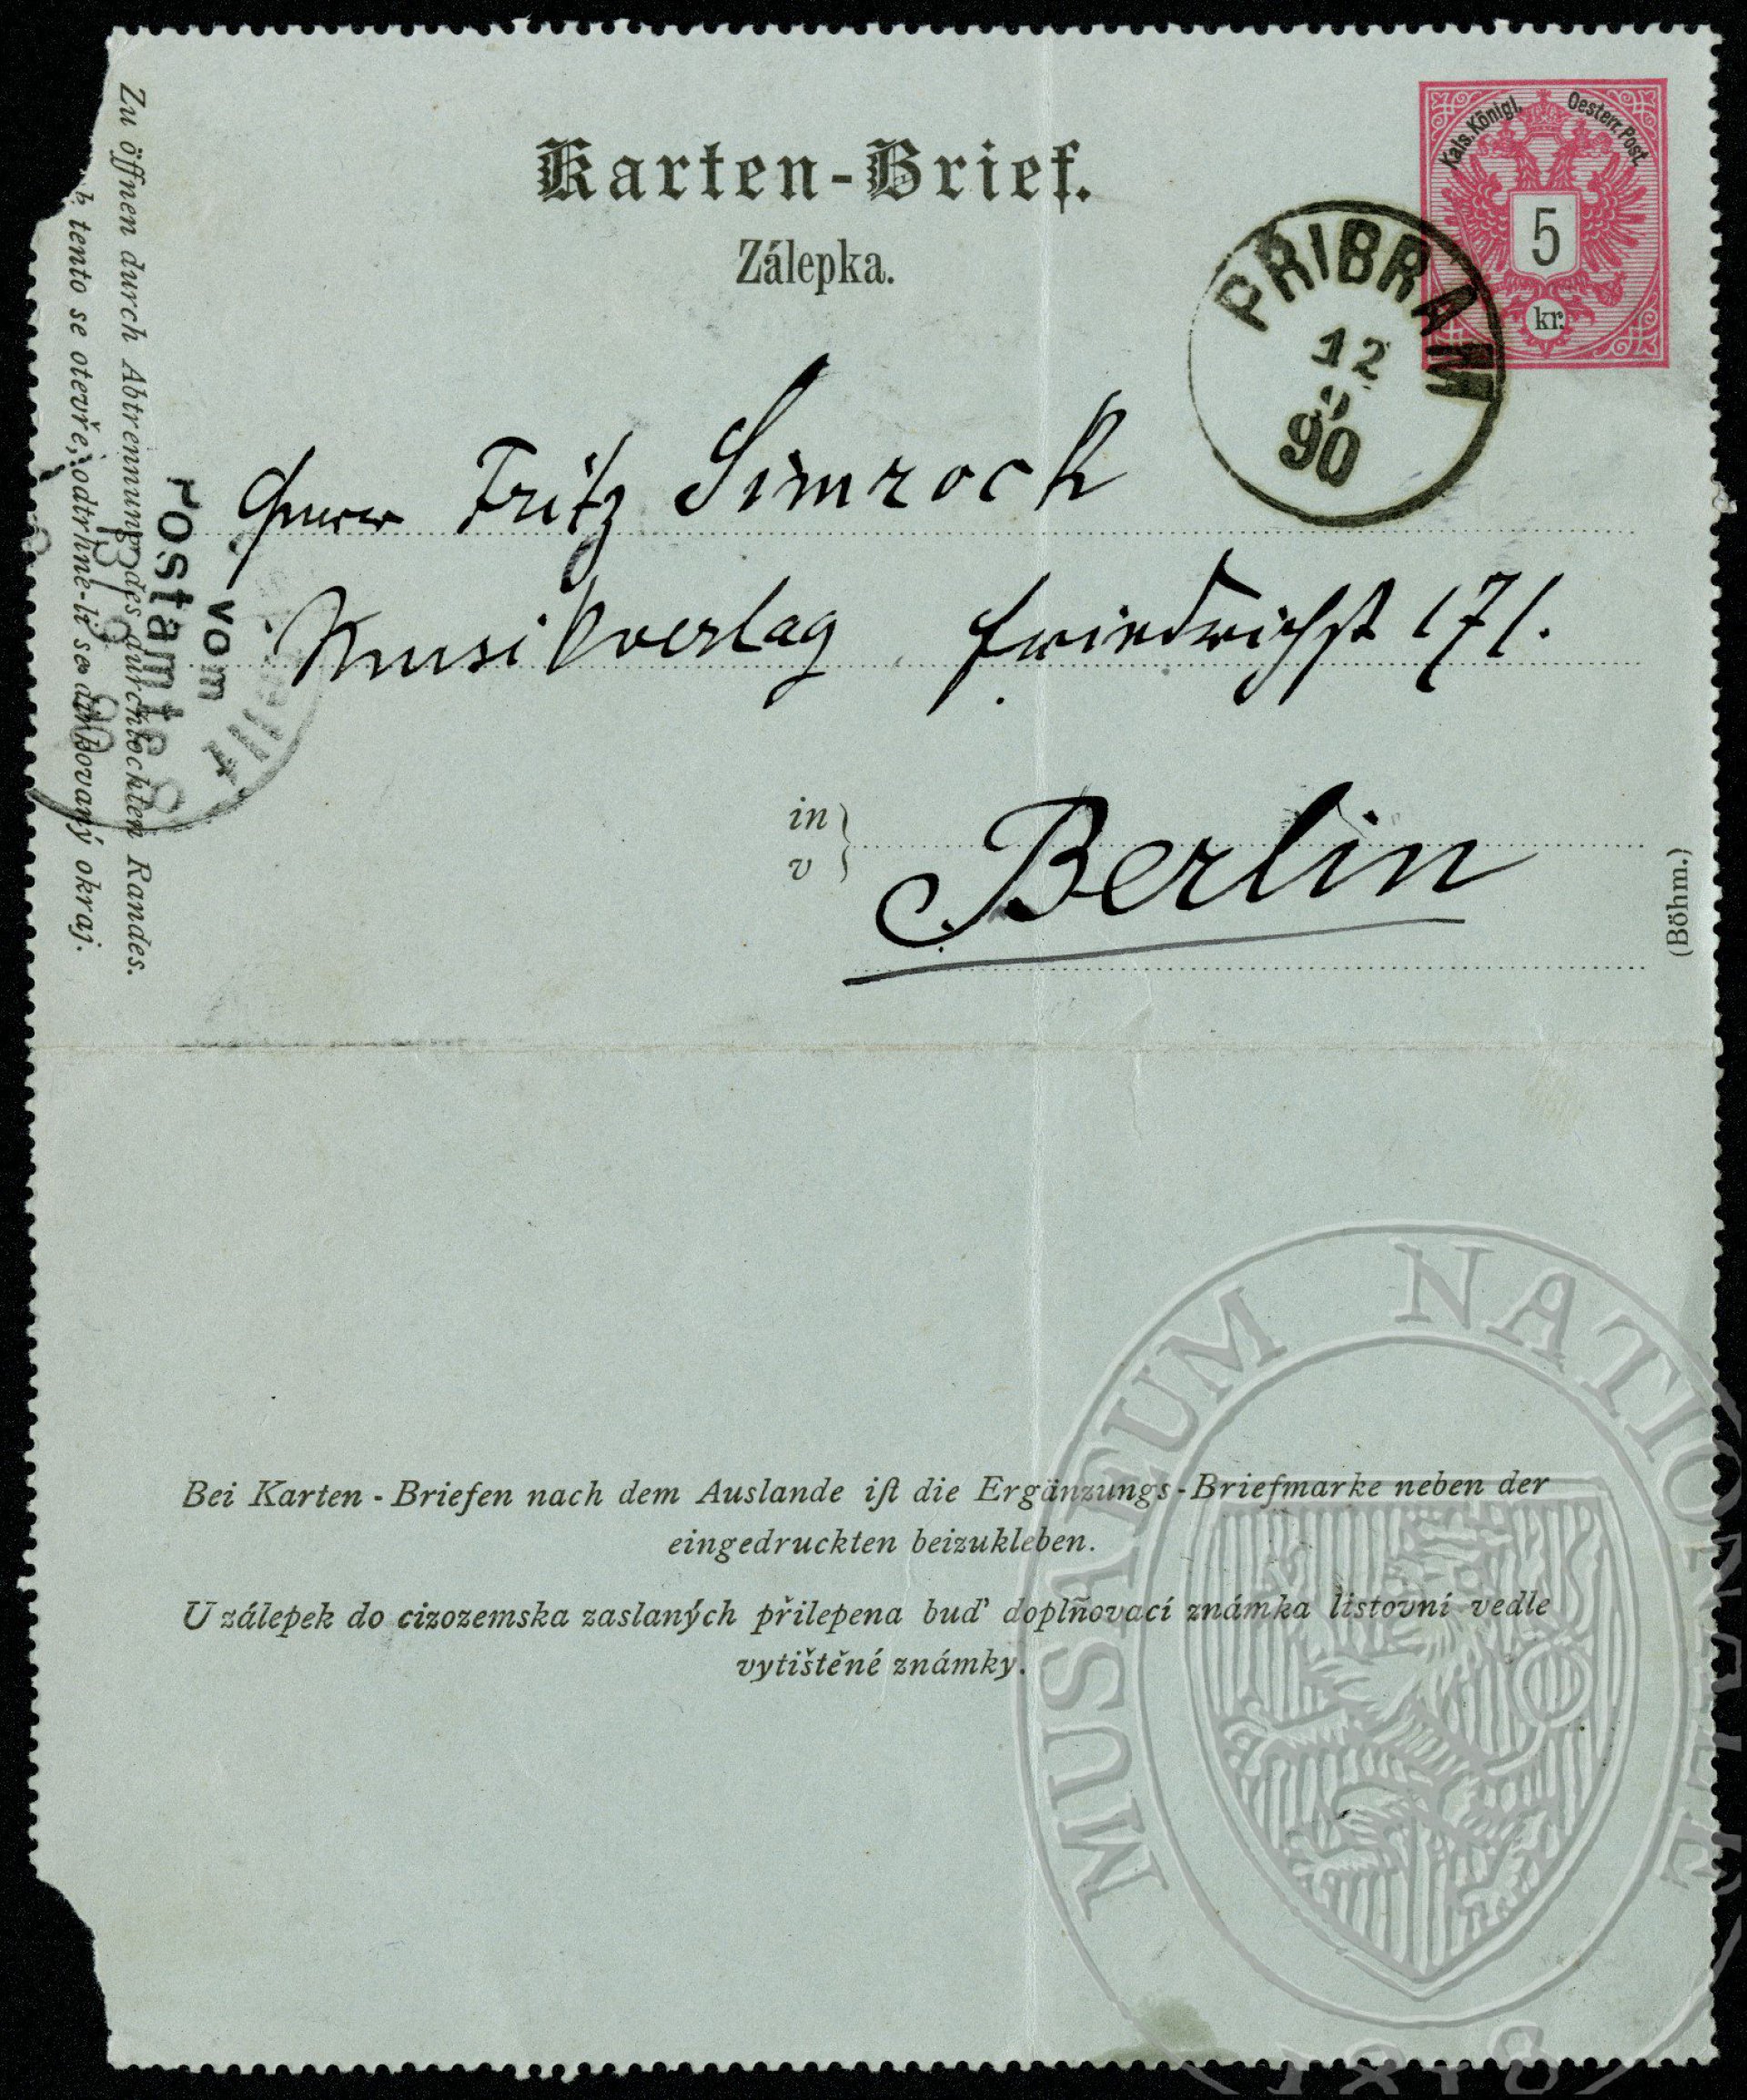 Karten-Brief.
Zálepka.
Kais. Königl. Oesterr. Post.
5
kr.
PŘIBRAM
12
9
90
Herrn Fritz Simrock
Musikverlag Friedrichst 171.
in
v
Berlin
(Böhm.)
Zu öffnen durch Abtrennung des durchlochten Randes.
tento se otevře, odtrhne-li se dírkovaný okraj.
vom
Postamte
13 9 90
Bei Karten-Briefen nach dem Auslande iſt die Ergänzungs-Briefmarke neben der
eingedruckten beizukleben.
U zálepek do cizozemska zaslaných přilepena buď doplňovací známka listovní vedle
vytištěné známky.
MUSAEUM NATIONALE
1818